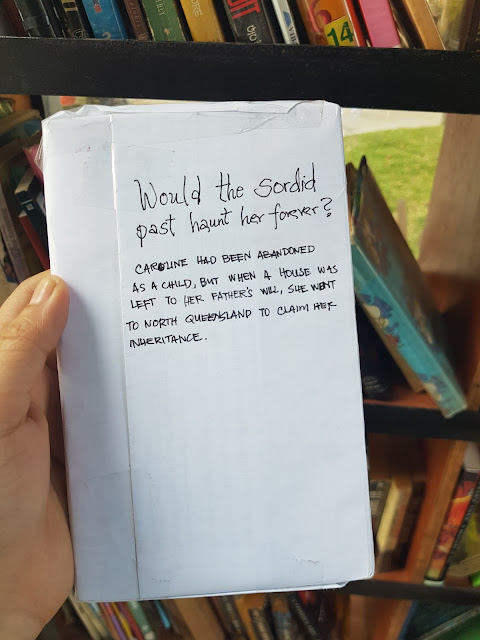 14
Would the sordid
past haunt her forever?
CAROLINE HAD BEEN ABANDONED
AS A CHILD, BUT WHEN A HOUSE WAS
LEFT TO HER FATHER'S WILL, SHE WENT
TO NORTH QUEENSLAND TO CLAIM HER
INHERITANCE.